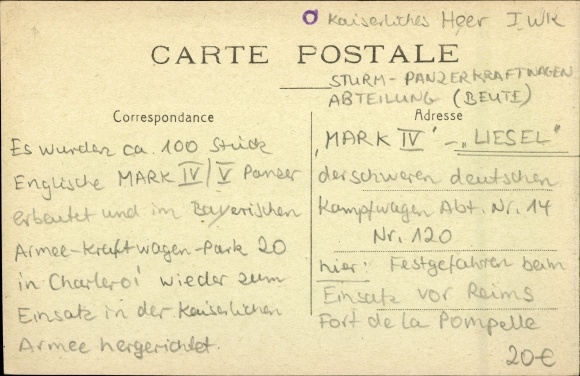 Kaiserliches Heer I WK
CARTE POSTALE
STURM-PANZERKRAFTWAGEN
ABTEILUNG (BEUTE)
Correspondance
Es wurden ca. 100 Stück
Englische MARK IV/V Panzer
erbeutet und im Bayerischen
Armee-Kraftwagen-Park 20
in Charleroi wieder zum
Einsatz in der Kaiserlichen
Armee hergerichtet.
Adresse
"MARK IV" - "LIESEL"
der schweren deutschen
Kampfwagen Abt. Nr. 14
Nr. 120
hier: Festgefahren beim
Einsatz vor Reims
Fort de la Pompelle
20€